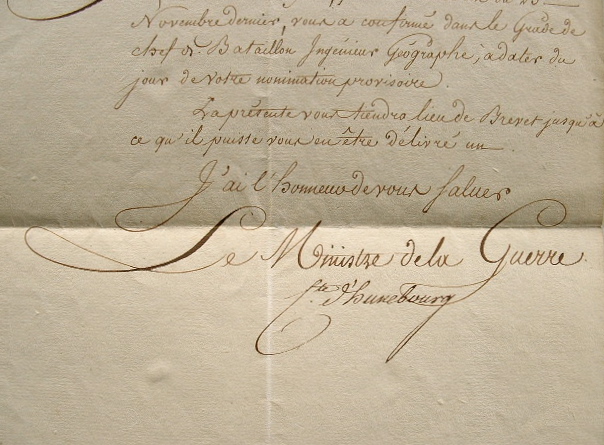 Novembre dernier, vous a confirmé dans le Grade de
chef de Bataillon Ingénieur Géographe, à dater du
jour de votre nomination provisoire.
La présente vous tiendra lieu de Brevet jusqu'à
ce qu'il puisse vous en être délivré un
J'ai l'honneur de vous saluer
Le Ministre de la Guerre.
Cte. d'hunebourg